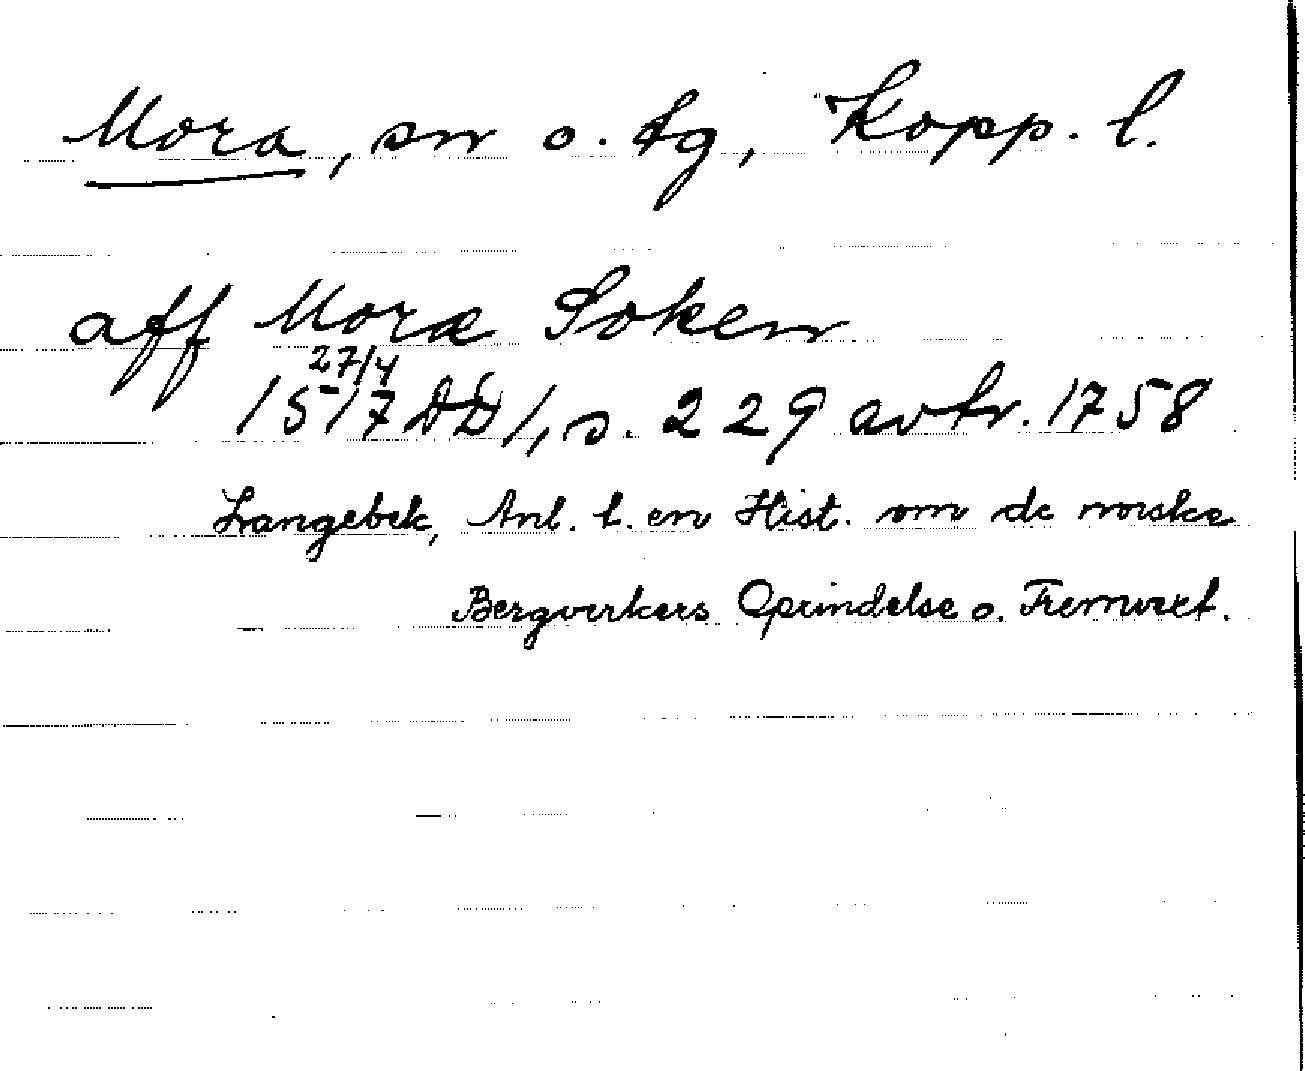 Mora, sn o. tg, Kopp. l.
aff Moræ Soken
27/4
1517 DD 1, s. 229 avtr. 1758
Langebek, Anl. t. en Hist. om de norske
Bergverkers Oprindelse o. Fremvext.